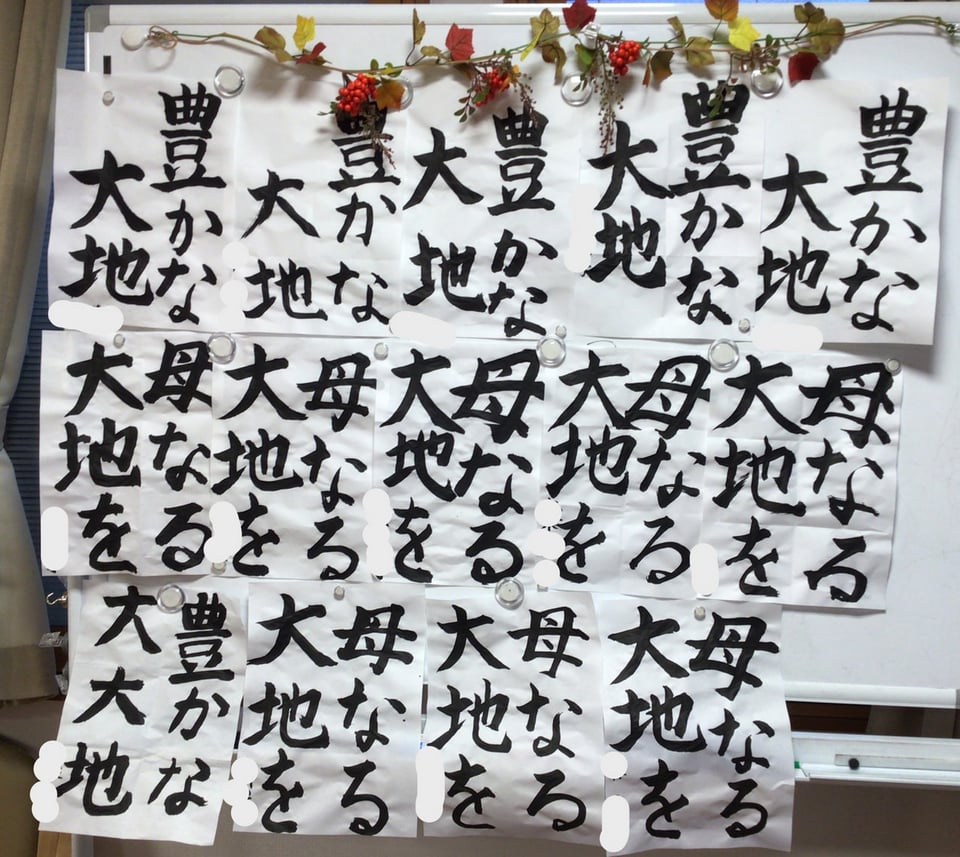 豊かな
大地
豊かな
大地
豊かな
大地
豊かな
大地
豊かな
大地
母なる
大地を
母なる
大地を
母なる
大地を
母なる
大地を
母なる
大地を
母なる
大地を
母なる
大地を
母なる
大地を
豊かな
大大地